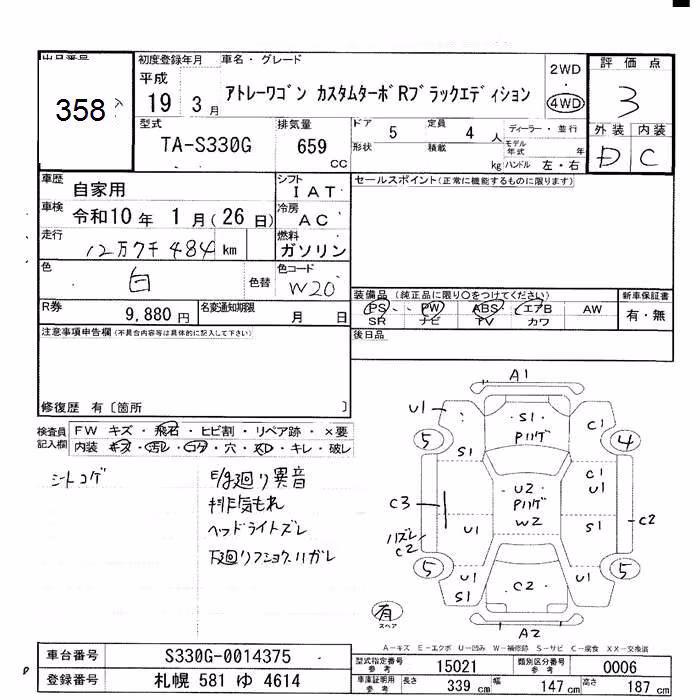 出品番号 初度登録年月 車名・グレード 2WD 評価点
358 平成 19 3月 アトレーワゴン カスタムターボRブラックエディション 4WD 3
型式 排気量 ドア 5 定員 4人 ディーラー・並行 外装 内装
TA-S330G 659 CC 形状 積載 kg モデル年式 年 ハンドル 左・右 D C
車歴 自家用 シフト IAT セールスポイント(正常に機能するものに限ります)
車検 令和10年 1月(26日) 冷房 AC
走行 12万7千484km 燃料 ガソリン
色 白 色替 色コード W20
装備品 (純正品に限り○をつけてください) 新車保証書
R券 9,880円 名変通知期限 月 日 PS PW ABS エアB AW 有・無
SR ナビ TV カワ
注意事項申告欄(不具合内容等は具体的に記入して下さい) 後日品
修復歴 有〔箇所 〕
検査員記入欄 FW キズ・飛石・ヒビ割・リペア跡・×要
内装 キズ・汚レ・コゲ・穴・・キレ・破レ
シートコゲ E/g廻り異音
排気もれ
ヘッドライトズレ
下廻り ハガレ
A1
U1 S1 Pハゲ C1
5 S1 4
C1
U2 U1
C3 Pハゲ
U1 W2 S1 C2
ハズレ
C2
5 U1 U1 5
S1 C2 S1
有
スペア A2
A-キズ E-エクボ U-凹み W-補修跡 S-サビ C-腐食 XX-交換済
車台番号 S330G-0014375 型式指定番号 参考 15021 類別区分番号 参考 0006
登録番号 札幌 581 ゆ 4614 車庫証明用 参考 長さ 339cm 幅 147cm 高さ 187cm